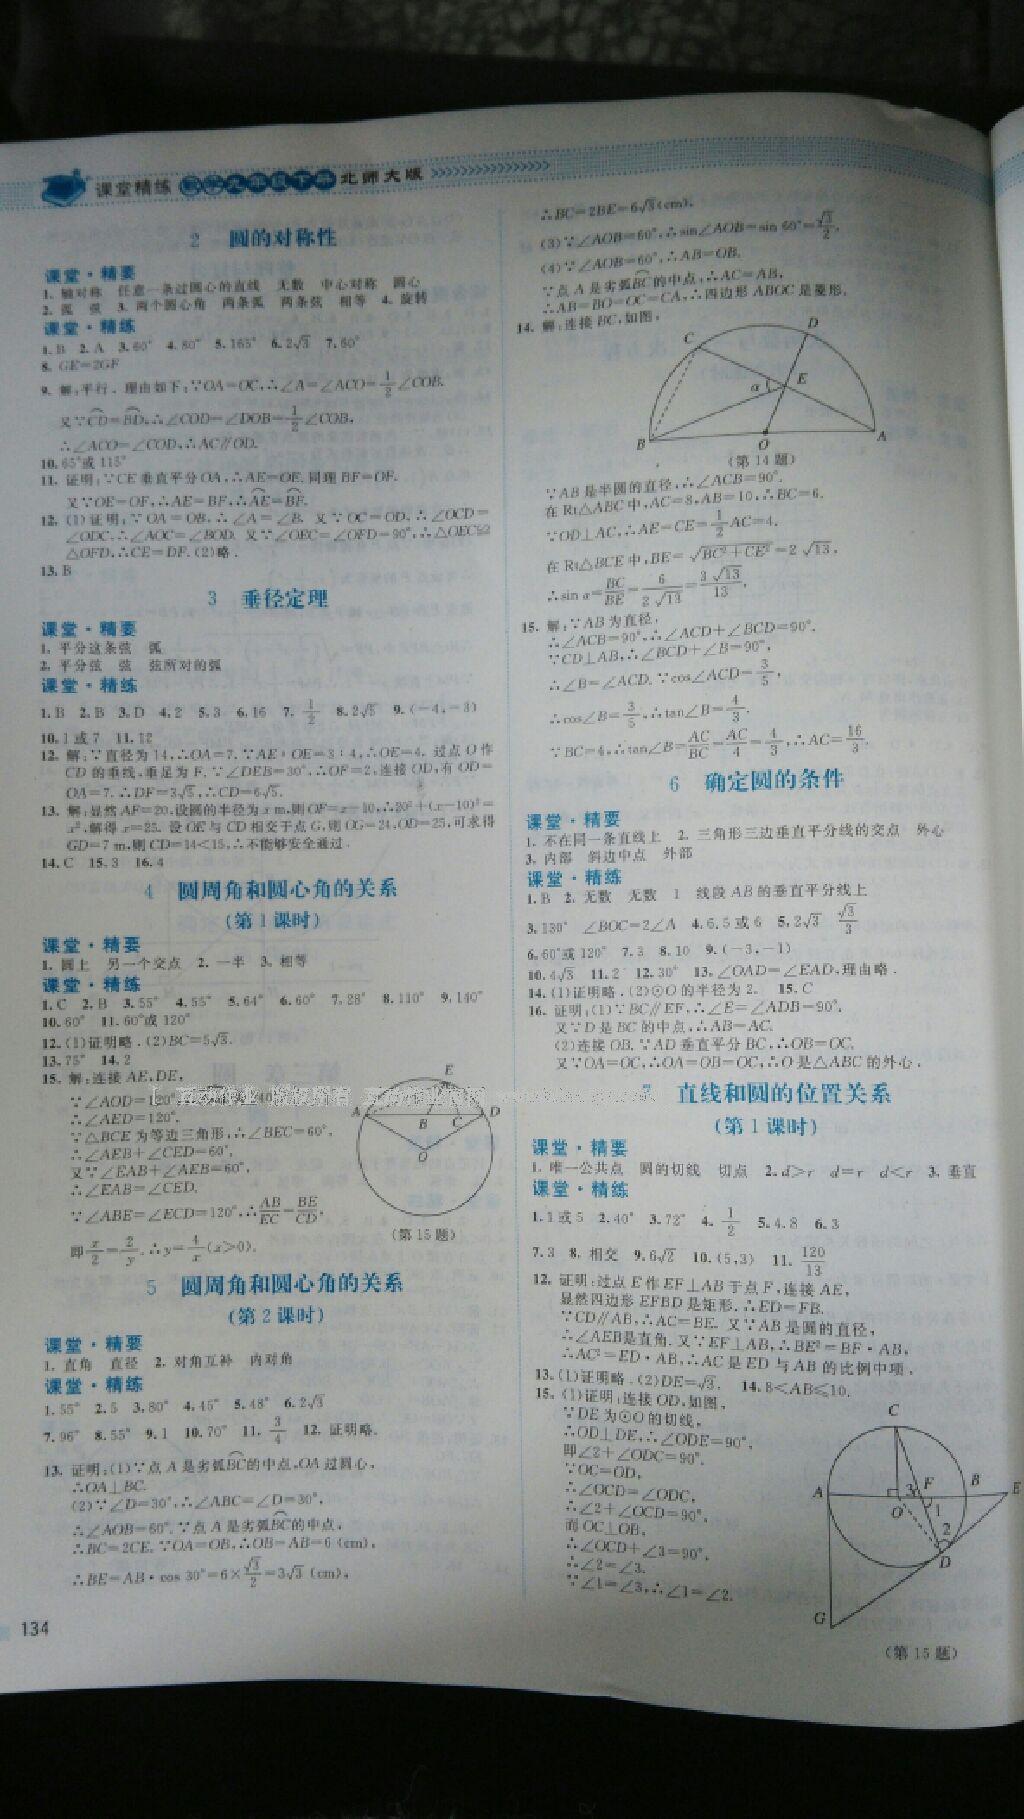 课堂精练 数学九年级下册 北师大版
2 圆的对称性
课堂·精要
1. 轴对称 任意一条过圆心的直线 无数 中心对称 圆心
2. 弧 弦 3. 两个圆心角 两条弧 两条弦 相等 4. 旋转
课堂·精练
1. B 2. A 3. 60° 4. 80° 5. 165° 6. 2√3 7. 60°
8. GE=2GF
9. 解:平行. 理由如下:∵OA=OC,∴∠A=∠ACO=1/2∠COB.
又∵CD=BD,∴∠COD=∠DOB=1/2∠COB,
∴∠ACO=∠COD,∴AC∥OD.
10. 65°或115°
11. 证明:∵CE垂直平分OA,∴AE=OE. 同理BF=OF.
又∵OE=OF,∴AE=BF,∴AE=BF.
12. (1)证明:∵OA=OB,∴∠A=∠B. 又∵OC=OD,∴∠OCD=
∠ODC,∴∠AOC=∠BOD. 又∵∠OEC=∠OFD=90°,∴△OEC≌
△OFD,∴CE=DF. (2)略.
13. B
3 垂径定理
课堂·精要
1. 平分这条弦 弧
2. 平分弦 弦 弦所对的弧
课堂·精练
1. B 2. B 3. D 4. 2 5. 3 6. 16 7. 1/2 8. 2√5 9. (-4,-3)
10. 1或7 11. 12
12. 解:∵直径为14,∴OA=7. ∵AE:OE=3:4,∴OE=4. 过点O作
CD的垂线,垂足为F. ∵∠DEB=30°,∴OF=2,连接OD,有OD=
OA=7. ∴DF=3√5,∴CD=6√5.
13. 解:显然AF=20,设圆的半径为x m,则OF=x-10,∴20²+(x-10)²=
x²,解得x=25. 设OE与CD相交于点G,则OG=24,OD=25,可求得
GD=7 m,则CD=14<15,∴不能够安全通过.
14. C 15. 3 16. 4
4 圆周角和圆心角的关系
(第1课时)
课堂·精要
1. 圆上 另一个交点 2. 一半 3. 相等
课堂·精练
1. C 2. B 3. 55° 4. 55° 5. 64° 6. 60° 7. 28° 8. 110° 9. 140°
10. 60° 11. 60°或120°
12. (1)证明略. (2)BC=5√3.
13. 75° 14. 2
15. 解:连接AE,DE,
∵∠AOD=120°,
∴∠AED=120°.
∵△BCE为等边三角形,∴∠BEC=60°,
∴∠AEB+∠CED=60°,
又∵∠EAB+∠AEB=60°,
∴∠EAB=∠CED.
∵∠ABE=∠ECD=120°,∴AB/EC=BE/CD,
即x/2=2/y. ∴y=4/x(x>0).
E
A
B
C
D
O
(第15题)
5 圆周角和圆心角的关系
(第2课时)
课堂·精要
1. 直角 直径 2. 对角互补 内对角
课堂·精练
1. 55° 2. 5 3. 80° 4. 45° 5. 48° 6. 2√3
7. 96° 8. 55° 9. 1 10. 70° 11. 3/4 12. 证明略.
13. 证明:(1)∵点A是劣弧BC的中点,OA过圆心,
∴OA⊥BC.
(2)∵∠D=30°,∴∠ABC=∠D=30°,
∴∠AOB=60°. ∵点A是劣弧BC的中点,
∴BC=2CE. ∵OA=OB,∴OB=AB=6(cm),
∴BE=AB·cos 30°=6×√3/2=3√3(cm),
134
∴BC=2BE=6√3(cm).
(3)∵∠AOB=60°,∴sin∠AOB=sin 60°=√3/2.
(4)∵∠AOB=60°,∴AB=OB.
∵点A是劣弧BC的中点,∴AC=AB,
∴AB=BO=OC=CA,∴四边形ABOC是菱形.
14. 解:连接BC,如图,
C
D
α
E
B
O
A
(第14题)
∵AB是半圆的直径,∴∠ACB=90°.
在Rt△ABC中,AC=8,AB=10,∴BC=6.
∵OD⊥AC,∴AE=CE=1/2AC=4.
在Rt△BCE中,BE=√(BC²+CE²)=2√13,
∴sin α=BC/BE=6/(2√13)=3√13/13.
15. 解:∵AB为直径,
∴∠ACB=90°,∴∠ACD+∠BCD=90°.
∵CD⊥AB,∴∠BCD+∠B=90°,
∴∠B=∠ACD. ∵cos∠ACD=3/5,
∴cos∠B=3/5,∴tan∠B=4/3.
∵BC=4,∴tan∠B=AC/BC=AC/4=4/3,∴AC=16/3.
6 确定圆的条件
课堂·精要
1. 不在同一条直线上 2. 三角形三边垂直平分线的交点 外心
3. 内部 斜边中点 外部
课堂·精练
1. B 2. 无数 无数 1 线段AB的垂直平分线上
3. 130° ∠BOC=2∠A 4. 6.5或6 5. 2√3 √3/3
6. 60°或120° 7. 3 8. 10 9. (-3,-1)
10. 4√3 11. 2 12. 30° 13. ∠OAD=∠EAD,理由略.
14. (1)证明略. (2)⊙O的半径为2. 15. C
16. 证明:(1)∵BC∥EF,∴∠E=∠ADB=90°.
又∵D是BC的中点,∴AB=AC.
(2)连接OB. ∵AD垂直平分BC,∴OB=OC.
又∵OA=OC,∴OA=OB=OC,∴O是△ABC的外心.
7 直线和圆的位置关系
(第1课时)
课堂·精要
1. 唯一公共点 圆的切线 切点 2. d>r d=r d<r 3. 垂直
课堂·精练
1. 1或5 2. 40° 3. 72° 4. 1/2 5. 4.8 6. 3
7. 3 8. 相交 9. 6√2 10. (5,3) 11. 120/13
12. 证明:过点E作EF⊥AB于点F,连接AE,
显然四边形EFBD是矩形. ∴ED=FB.
∵CD∥AB,∴AC=BE. 又∵AB是圆的直径,
∴∠AEB是直角. 又∵EF⊥AB,∴BE²=BF·AB,
∴AC²=ED·AB,∴AC是ED与AB的比例中项.
13. (1)证明略. (2)DE=√3. 14. 8<AB≤10.
15. (1)证明:连接OD,如图,
∵DE为⊙O的切线,
∴OD⊥DE,∴∠ODE=90°,
即∠2+∠ODC=90°.
∵OC=OD,
∴∠OCD=∠ODC,
∴∠2+∠OCD=90°,
而OC⊥OB,
∴∠OCD+∠3=90°,
∴∠2=∠3.
∵∠1=∠3,∴∠1=∠2.
C
A
3
F
B
E
O
1
2
D
G
(第15题)